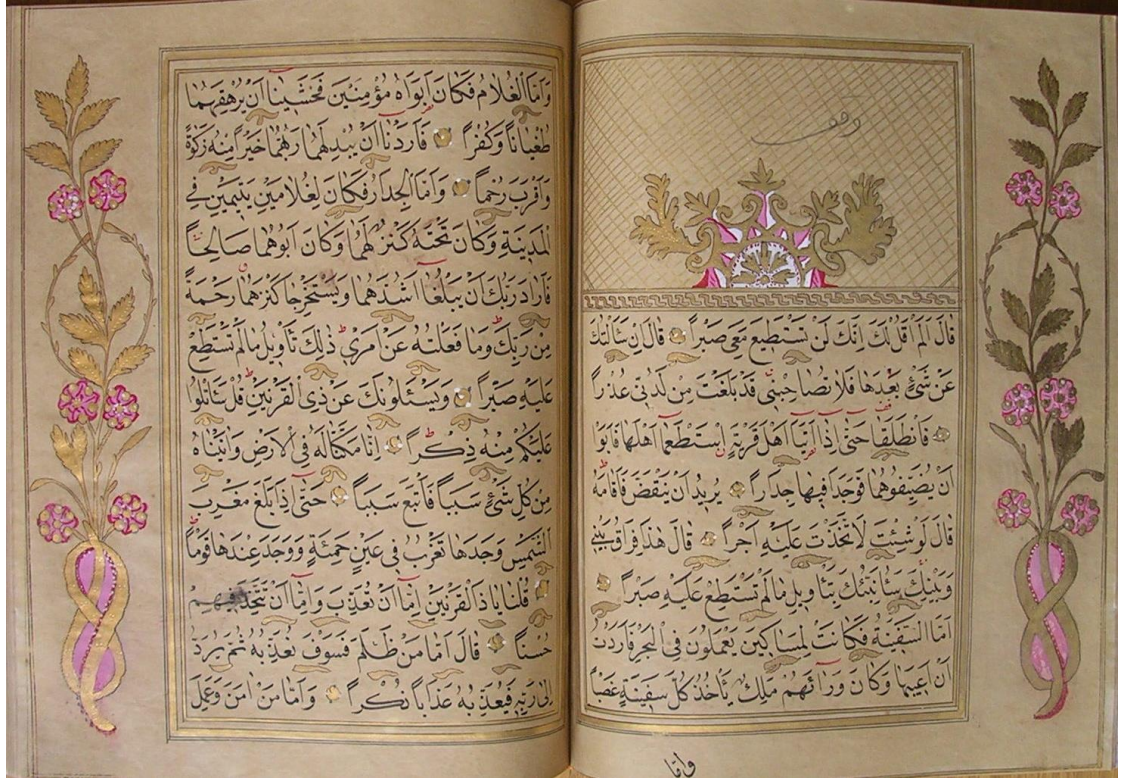 وقف
قَالَ اَلَمْ اَقُلْ لَكَ اِنَّكَ لَنْ تَسْتَطِيعَ مَعِيَ صَبْراً قَالَ اِنْ سَاَلْتُكَ
عَنْ شَيْءٍ بَعْدَهَا فَلَا تُصَاحِبْنِي قَدْ بَلَغْتَ مِنْ لَدُنِّي عُذْراً
فَانْطَلَقَا حَتّٰى اِذَا اَتَيَا اَهْلَ قَرْيَةٍ اِسْتَطْعَمَا اَهْلَهَا فَاَبَوْا
اَنْ يُضَيِّفُوهُمَا فَوَجَدَا فِيهَا جِدَاراً يُرِيدُ اَنْ يَنْقَضَّ فَاَقَامَهُ
قَالَ لَوْ شِئْتَ لَاتَّخَذْتَ عَلَيْهِ اَجْراً قَالَ هٰذَا فِرَاقُ بَيْنِي
وَبَيْنِكَ سَاُنَبِّئُكَ بِتَاْوِيلِ مَا لَمْ تَسْتَطِعْ عَلَيْهِ صَبْراً
اَمَّا السَّفِينَةُ فَكَانَتْ لِمَسَاكِينَ يَعْمَلُونَ فِي الْبَحْرِ فَاَرَدْتُ
اَنْ اَعِيبَهَا وَكَانَ وَرَائَهُمْ مَلِكٌ يَاْخُذُ كُلَّ سَفِينَةٍ غَصْباً
واما
وَاَمَّا الْغُلَامُ فَكَانَ اَبَوَاهُ مُؤْمِنَيْنِ فَخَشِينَا اَنْ يُرْهِقَهُمَا
طُغْيَاناً وَكُفْراً فَاَرَدْنَا اَنْ يُبْدِلَهُمَا رَبُّهُمَا خَيْراً مِنْهُ زَكٰوةً
وَاَقْرَبَ رُحْماً وَاَمَّا الْجِدَارُ فَكَانَ لِغُلَامَيْنِ يَتِيمَيْنِ فِي
الْمَدِينَةِ وَكَانَ تَحْتَهُ كَنْزٌ لَهُمَا وَكَانَ اَبُوهُمَا صَالِحاً
فَاَرَادَ رَبُّكَ اَنْ يَبْلُغَا اَشُدَّهُمَا وَيَسْتَخْرِجَا كَنْزَهُمَا رَحْمَةً
مِنْ رَبِّكَ وَمَا فَعَلْتُهُ عَنْ اَمْرِي ذٰلِكَ تَاْوِيلُ مَا لَمْ تَسْطِعْ
عَلَيْهِ صَبْراً وَيَسْـَٔلُونَكَ عَنْ ذِي الْقَرْنَيْنِ قُلْ سَاَتْلُوا
عَلَيْكُمْ مِنْهُ ذِكْراً اِنَّا مَكَّنَّا لَهُ فِي الْاَرْضِ وَاٰتَيْنَاهُ
مِنْ كُلِّ شَيْءٍ سَبَباً فَاَتْبَعَ سَبَباً حَتّٰى اِذَا بَلَغَ مَغْرِبَ
الشَّمْسِ وَجَدَهَا تَغْرُبُ فِي عَيْنٍ حَمِئَةٍ وَوَجَدَ عِنْدَهَا قَوْماً
قُلْنَا يَا ذَا الْقَرْنَيْنِ اِمَّا اَنْ تُعَذِّبَ وَاِمَّا اَنْ تَتَّخِذَ فِيهِمْ
حُسْناً قَالَ اَمَّا مَنْ ظَلَمَ فَسَوْفَ نُعَذِّبُهُ ثُمَّ يُرَدُّ
اِلٰى رَبِّهِ فَيُعَذِّبُهُ عَذَاباً نُكْراً وَاَمَّا مَنْ اٰمَنَ وَعَمِلَ